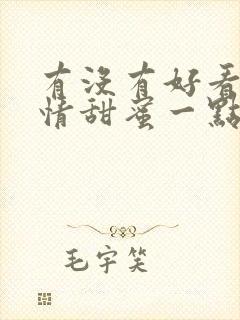 有沒有好看
情甜蜜一點
毛宇笑